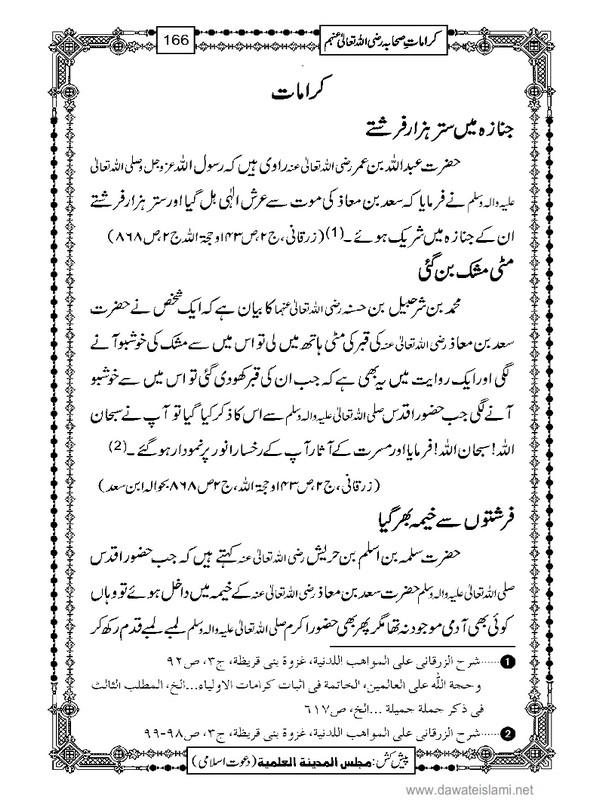 166
کراماتِ صحابہ رضی اللہ تعالیٰ عنہم
کرامات
جنازہ میں ستر ہزار فرشتے
حضرت عبداللہ بن عمر رضی اللہ تعالیٰ عنہ راوی ہیں کہ رسول اللہ عزوجل و صلی اللہ تعالیٰ
علیہ والہ وسلم نے فرمایا کہ سعد بن معاذ کی موت سے عرش الٰہی ہل گیا اور ستر ہزار فرشتے
ان کے جنازہ میں شریک ہوئے ۔(1) (زرقانی، ج۲،ص۱۴۳و حجۃ اللہ ج۲،ص۸۶۸)
مٹی مشک بن گئی
محمد بن شرحبیل بن حسنہ رضی اللہ تعالیٰ عنہما کا بیان ہے کہ ایک شخص نے حضرت
سعد بن معاذ رضی اللہ تعالیٰ عنہ کی قبر کی مٹی ہاتھ میں لی تو اس میں سے مشک کی خوشبو آنے
لگی اور ایک روایت میں یہ بھی ہے کہ جب ان کی قبر کھودی گئی تو اس میں سے خوشبو
آنے لگی جب حضور اقدس صلی اللہ تعالیٰ علیہ والہ وسلم سے اس کا ذکر کیا گیا تو آپ نے سبحان
اللہ! سبحان اللہ! فرمایا اور مسرت کے آثار آپ کے رخسار انور پر نمودار ہو گئے ۔(2)
(زرقانی، ج۲،ص۱۴۳و حجۃ اللہ، ج۲ص۸۶۸ بحوالہ ابن سعد)
فرشتوں سے خیمہ بھر گیا
حضرت سلمہ بن اسلم بن حریش رضی اللہ تعالیٰ عنہ کہتے ہیں کہ جب حضور اقدس
صلی اللہ تعالیٰ علیہ والہ وسلم حضرت سعد بن معاذ رضی اللہ تعالیٰ عنہ کے خیمہ میں داخل ہوئے تو وہاں
کوئی بھی آدمی موجود نہ تھا مگر پھر بھی حضور اکرم صلی اللہ تعالیٰ علیہ والہ وسلم لمبے لمبے قدم رکھ کر
1......شرح الزرقانی علی المواهب اللدنیة، غزوة بنی قریظة، ج۳، ص۹۲
وحجة اللّٰه علی العالمین، الخاتمة فی اثبات کرامات الاولیاء...الخ، المطلب الثالث
فی ذکر جملة جمیلة ...الخ، ص۶۱۷
2......شرح الزرقانی علی المواهب اللدنیة، غزوة بنی قریظة، ج۳، ص۹۸-۹۹
پیش کش: مجلس المدینة العلمیة (دعوت اسلامی)
www.dawateislami.net